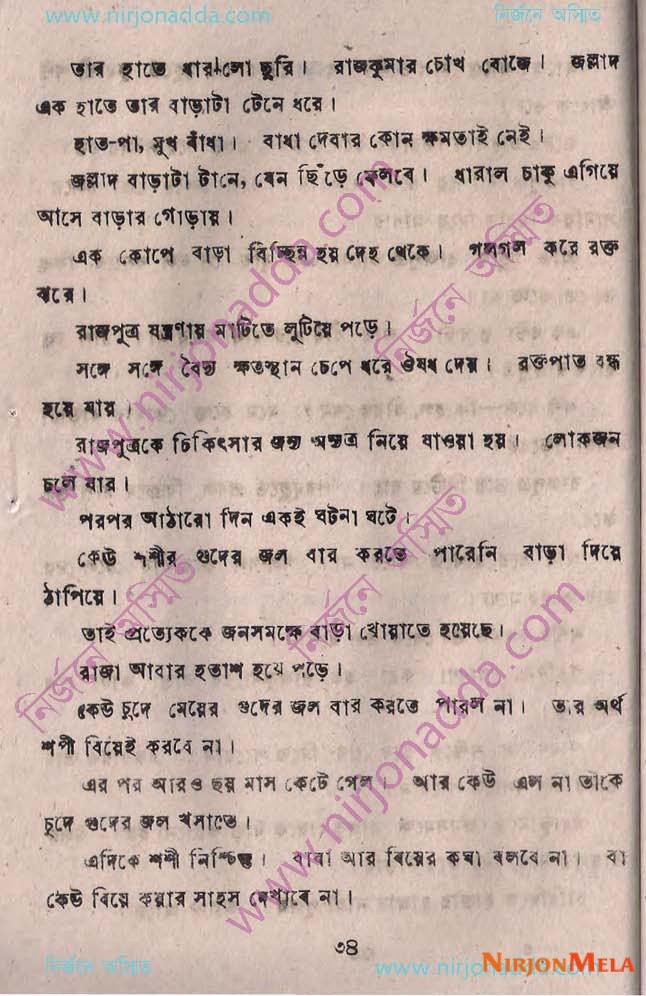 www.nirjonadda.com নির্জনে অস্মিত
তার হাতে ধারালো ছুরি। রাজকুমার চোখ বোজে। জল্লাদ
এক হাতে তার বাড়াটা টেনে ধরে।
হাত-পা, মুখ বাঁধা। বাধা দেবার কোন ক্ষমতাই নেই।
জল্লাদ বাড়াটা টানে, যেন ছিঁড়ে ফেলবে। ধারাল চাকু এগিয়ে
আসে বাড়ার গোড়ায়।
এক কোপে বাড়া বিচ্ছিন্ন হয় দেহ থেকে। গলগল করে রক্ত
ঝরে।
রাজপুত্র যন্ত্রণায় মাটিতে লুটিয়ে পড়ে।
সঙ্গে সঙ্গে বৈদ্য ক্ষতস্থান চেপে ধরে ঔষধ দেয়। রক্তপাত বন্ধ
হয়ে যায়।
রাজপুত্রকে চিকিৎসার জন্য অন্যত্র নিয়ে যাওয়া হয়। লোকজন
চলে যায়।
পরপর আঠারো দিন একই ঘটনা ঘটে।
কেউ শশীর গুদের জল বার করতে পারেনি বাড়া দিয়ে
ঠাপিয়ে।
তাই প্রত্যেককে জনসমক্ষে বাড়া খোয়াতে হয়েছে।
রাজা আবার হতাশ হয়ে পড়ে।
কেউ চুদে মেয়ের গুদের জল বার করতে পারল না। তার অর্থ
শশী বিয়েই করবে না।
এর পর আরও ছয় মাস কেটে গেল। আর কেউ এল না তাকে
চুদে গুদের জল খসাতে।
এদিকে শশী নিশ্চিন্ত। বাবা আর বিয়ের কথা বলবে না। বা
কেউ বিয়ে করার সাহস দেখাবে না।
৩৪
নির্জনে অস্মিত www.nirjonadda.com
NIRJONMELA
www.nirjonadda.com
নির্জনে অস্মিত
নির্জনে অস্মিত
নির্জনে অস্মিত
www.nirjonadda.com